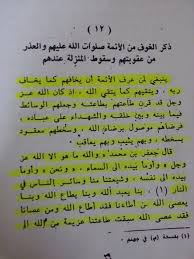 (١٢)
ذكر الخوف من الأئمة صلوات الله عليهم والحذر
من عقوبتهم وسقوط المنزلة عندهم
ينبغي لمن عرف الأئمة أن يخافهم كما يخاف
ربه ، ويتقيهم كما يتقي الله ، اذ كان الله عز
وجل قد قرن طاعتهم بطاعته وجعلهم الوسائط
فيما بينه وبين خلقه والشهداء على عباده ،
فرضاهم موصول برضاه الله ، وسخطهم معقود
بسخطه ، وبهم يثيب وبهم يعاقب
قال جعفر بن محمد والله ما هو الا الله عز
وجل وأومأ بيده الى السماء ، ونحن وأومأ
بيده الى نفسه ، وشيعتنا منا وسائر الناس في
النار (١) ، بنا يعبد الله وبنا يطاع الله وبنا
يعصى الله من أطاعنا فقد أطاع الله ومن عصانا
فقد عصى الله سبقت طاعتنا عزيمة من الله الى
(١) في نسخة (م) في جهنم .
٣٩